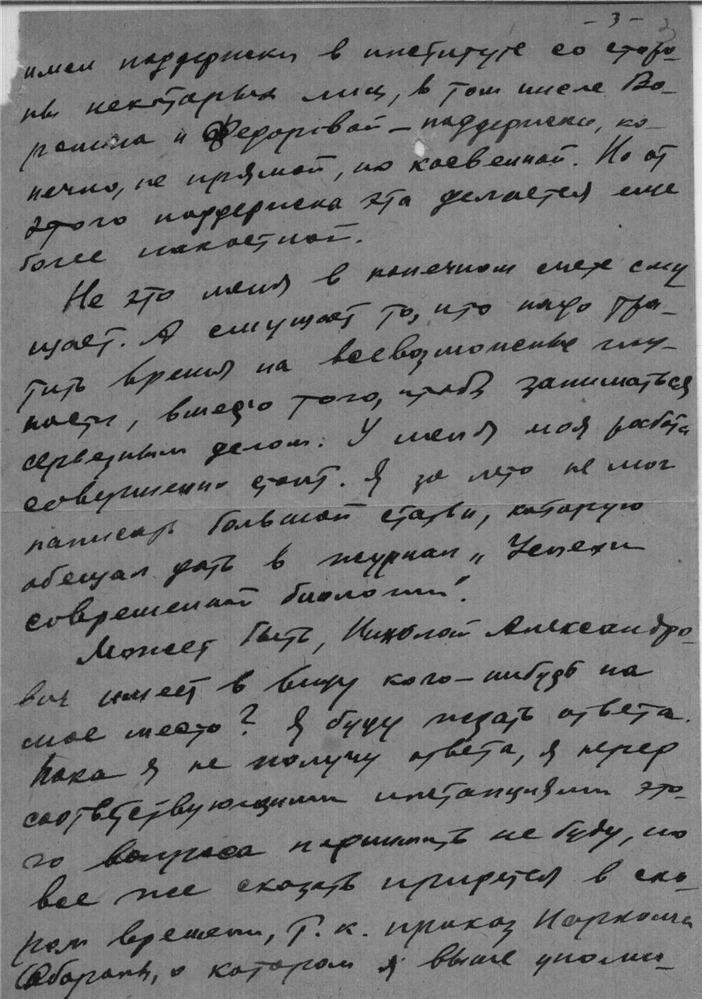 - 3 -
3
имел поддержки в институте со сторо-
ны некоторых лиц, в том числе Во-
ронина и Федоровой – поддержки, ко-
нечно, не прямой, но косвенной. Но от
этого поддержка эта делается еще
более пакостной.
Не это меня в конечном счете сму
щает. А смущает то, что надо тра-
тить время на всевозможные глу-
пости, вместо того, чтобы заниматься
серьезным делом. У меня моя работа
совершенно стоит. Я за лето не мог
написать большой статьи, которую
обещал дать в журнал „Успехи
современной биологии".
Может быть, Николай Александро-
вич имеет в виду кого-нибудь на
мое место? Я буду ждать ответа.
Пока я не получу ответа, я перед
соответствующими инстанциями это-
го вопроса поднимать не буду, но
все же сказать придется в ско-
ром времени, т.к. приказ Наркома
Обороны, о котором я выше упомя-